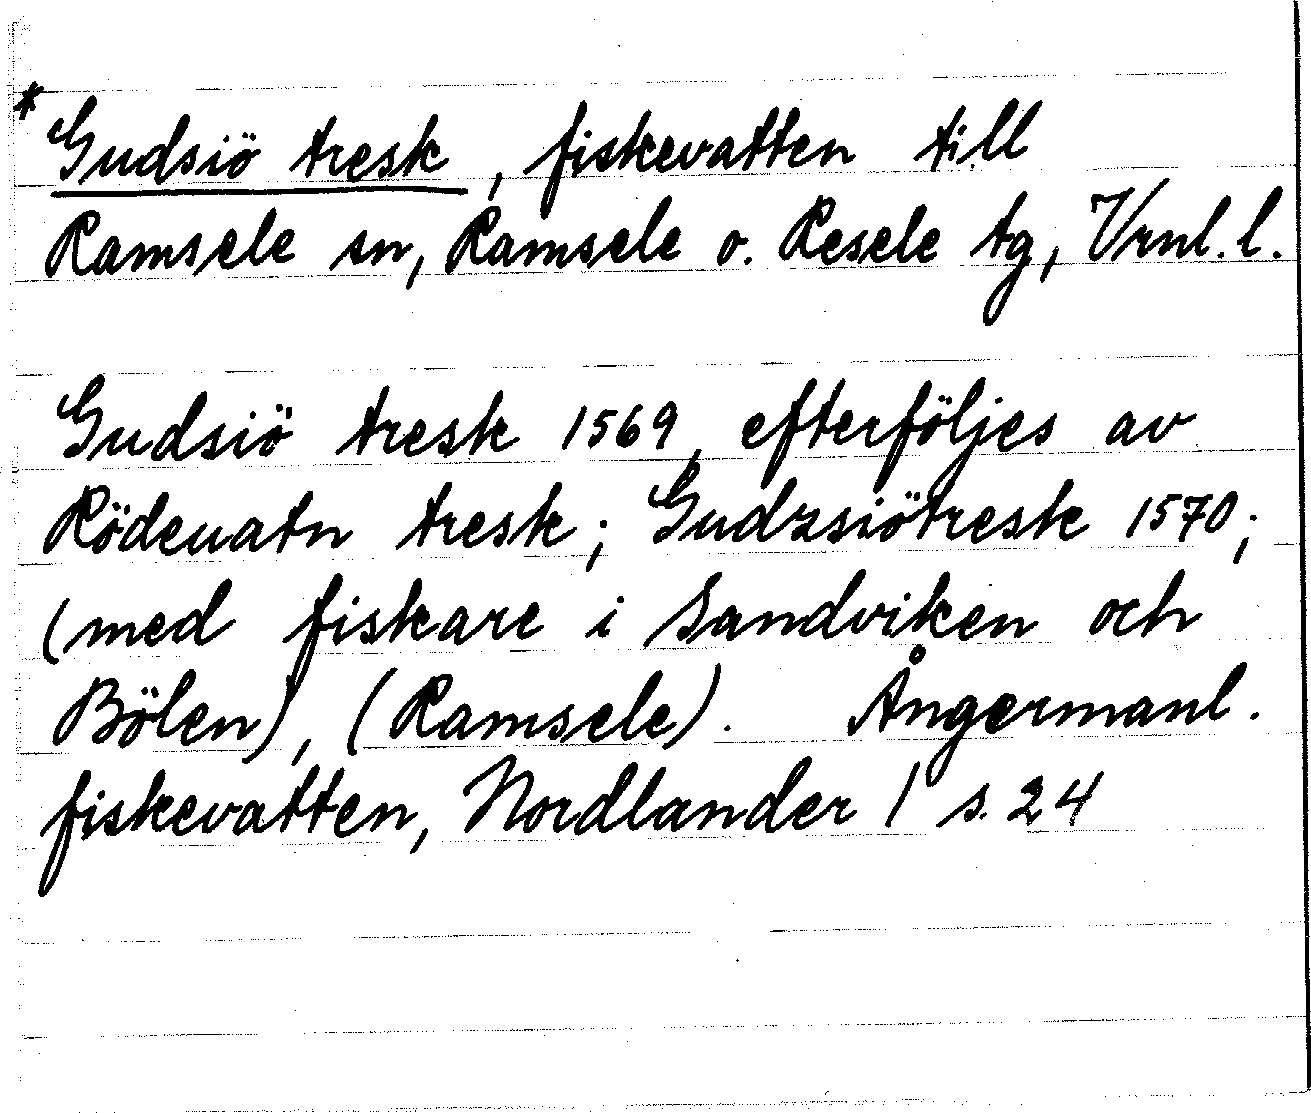 * Gudsiö tresk, fiskevatten till
Ramsele sn, Ramsele o. Resele tg, Vrnl. l.
Gudsiö tresk 1569, efterföljes av
Rödeuatn tresk; Gudzsiötresk 1570;
(med fiskare i Sandviken och
Bölen), (Ramsele). Ångermanl.
fiskevatten, Nordlander 1 s. 24